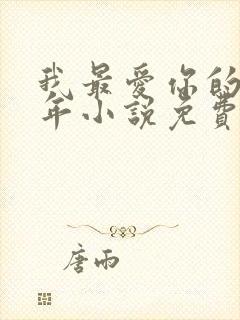 我最爱你的
年小说免費
唐雨